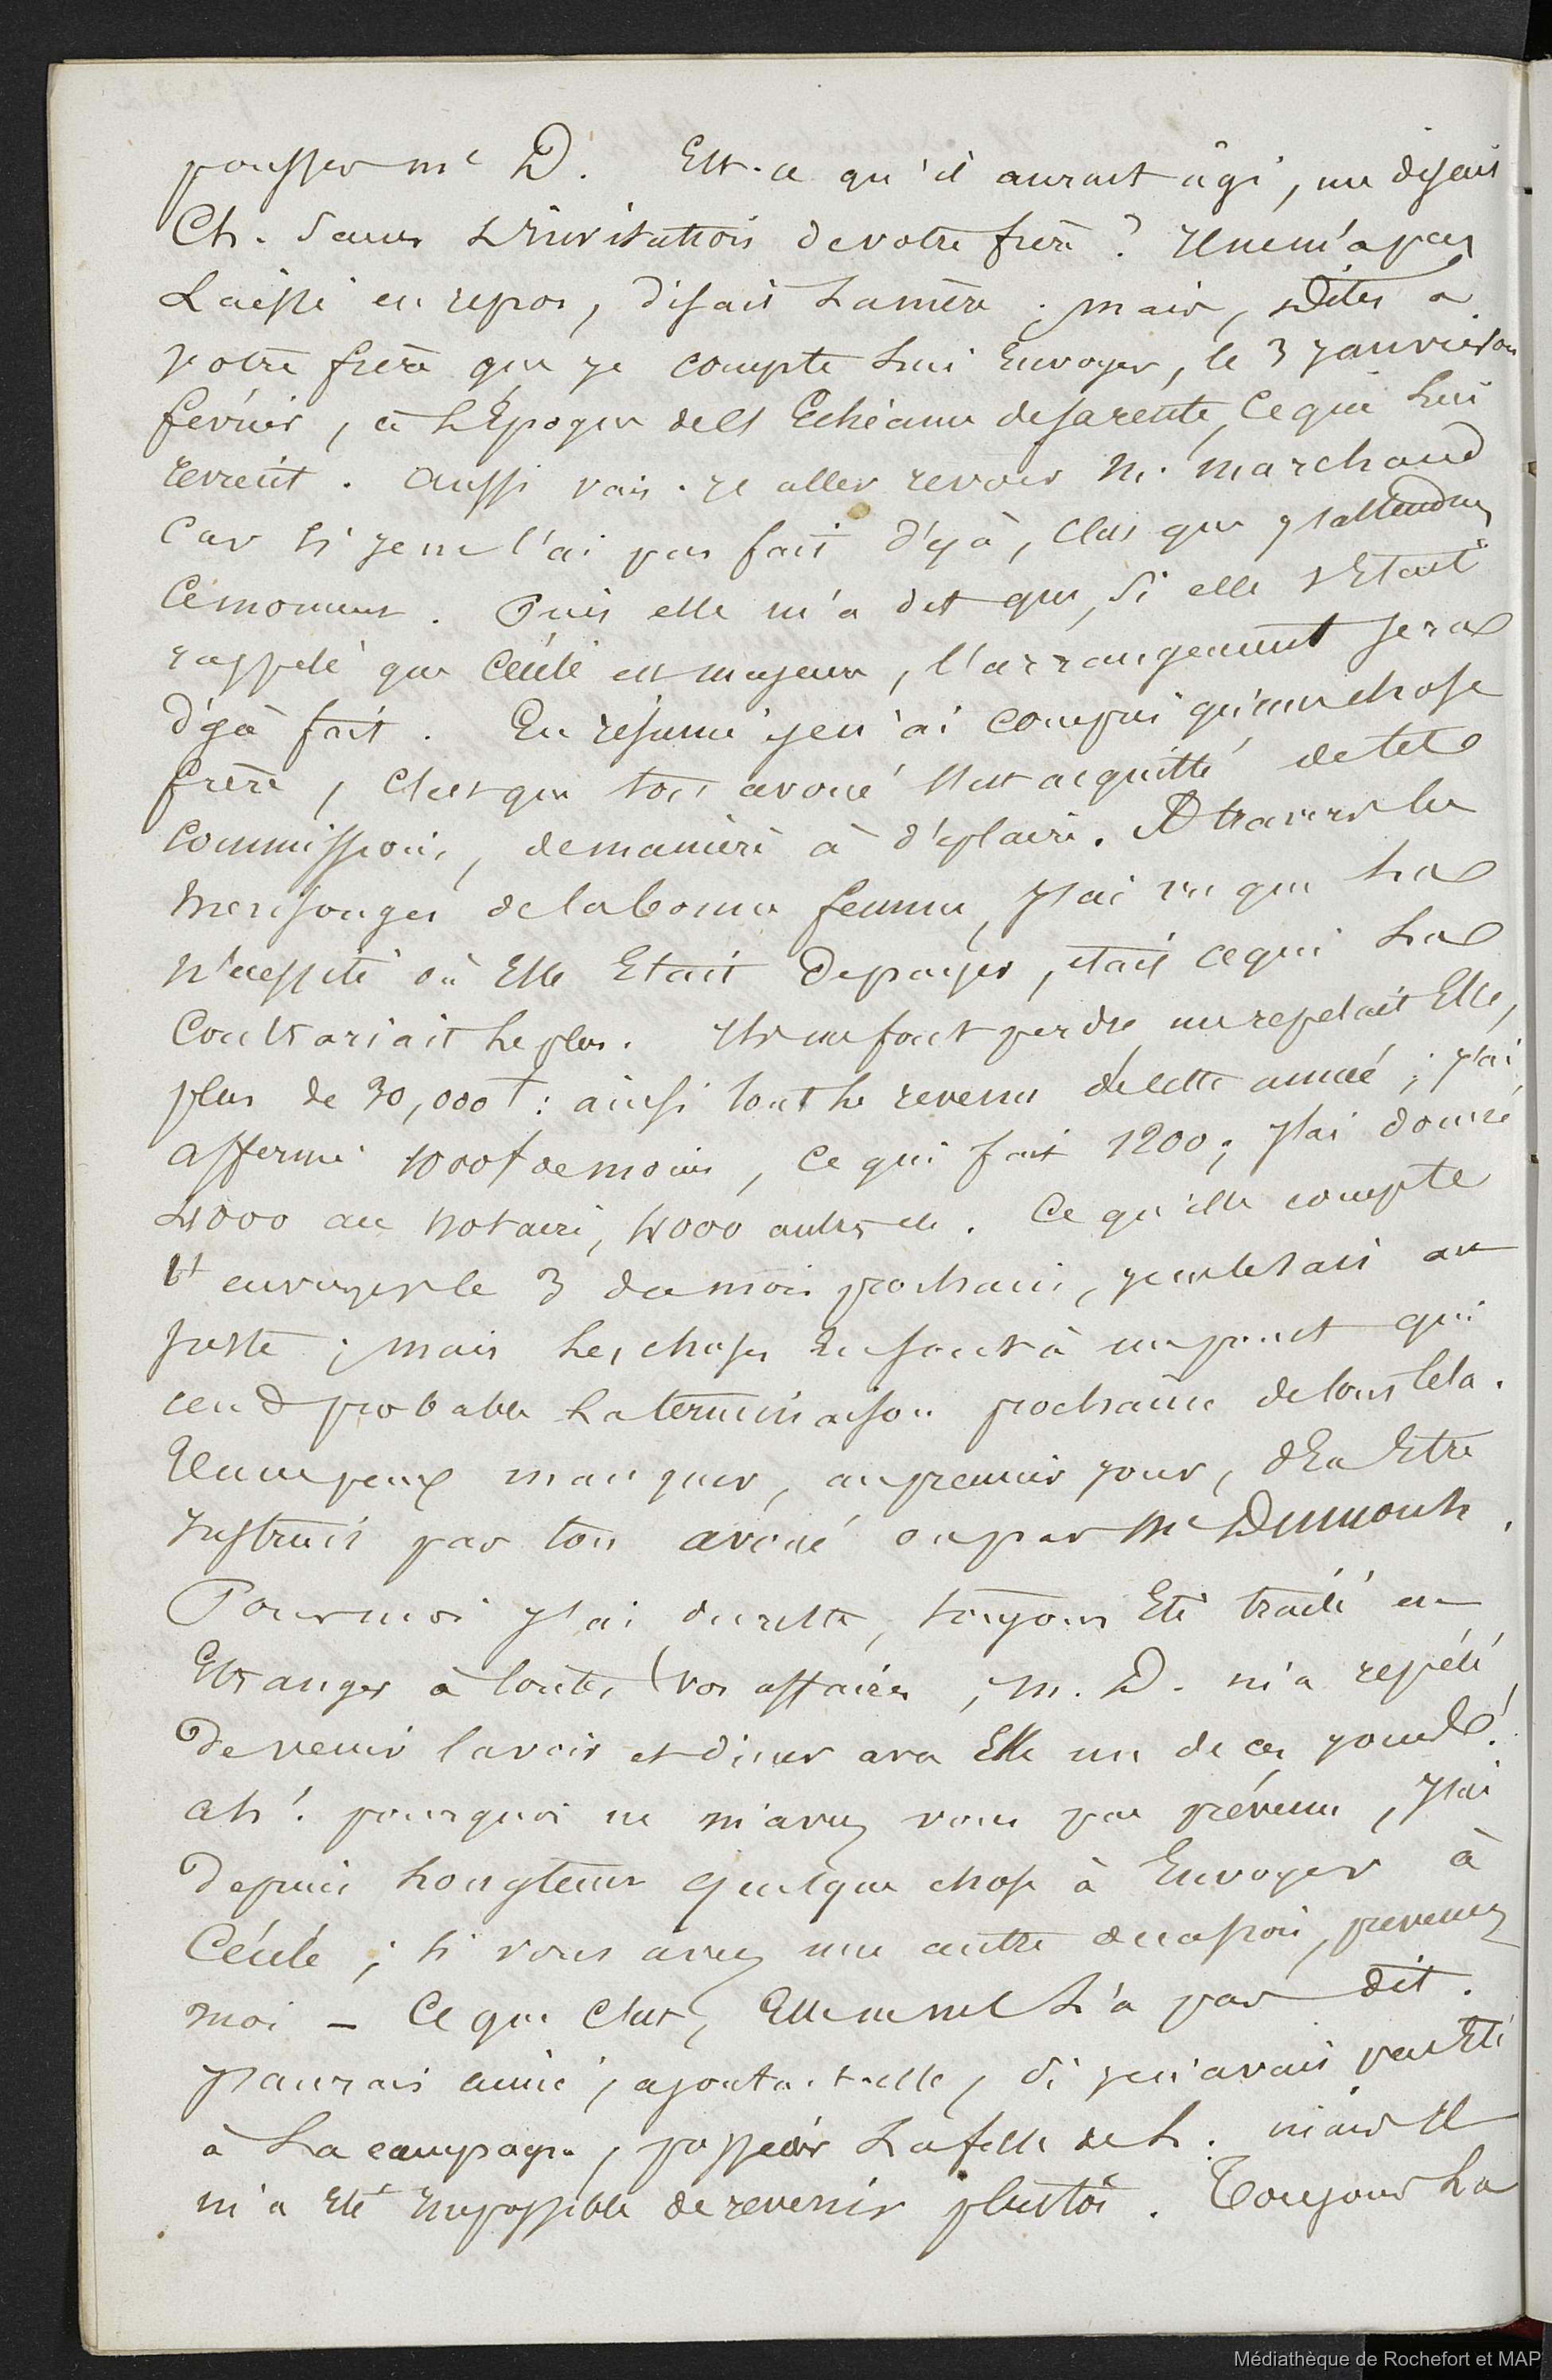 pousser Mr D. Est-ce qu'il aurait agi, me disait
Ch. sans L'invitation de votre frère ? Il ne m'a pas
Laissé en repos, disait La mère ; mais, Dites a
votre frère que je compte Lui Envoyer, le 3 janvier ou
fevrier, à L'Epoque de L'Echéance de sa rente, Ce qui Lui
revient. aussi vais-je aller revoir M. marchand
Car si je ne l'ai pas fait déjà, C'est que j'attendais
Ce moment. Puis elle m'a dit que, Si elle s'Etait
rappelé que Cécile est majeure, l'arrangement sera
déjà fait. En résumé je n'ai compris qu'une chose
frère, C'est que ton avoué s'est acquitté de ta
Commission, de manière à déplaire. A travers les
Mensonges de la bonne femme, j'ai vu que La
nécessité où Elle Etait De payer, était ce qui La
Contrariait le plus. Ils me font perdre me repetait Elle,
plus de 30,000f : ainsi tout Le revenu de cette année ; j'ai
affermé 1000f de moins, Ce qui fait 1200 ; j'ai donné
4000 au notaire, 4000 autres etc. Ce qu'elle compte
t'envoyer le 3 du mois prochain, je ne le sais au
juste ; mais Les choses En sont à un point qui
rend probable La terminaison prochaine de tout Cela.
Tu ne peux manquer, au premier jour, d'En Etre
Instruit par ton avoué ou par Mr Dumonts.
Pour moi j'ai du reste, toujours Eté traité en
Etranger à toutes vos affaires ; M. D. m'a repété
De venir la voir et diner avec Elle un de ces jours.
ah ! pourquoi ne m'avez vous pas prévenu, j'ai
Depuis Longtems quelque chose à Envoyer à
Cécile ; si vous avez une autre occasion, prevenez
moi - Ce que C'est, Elle ne me L'a pas dit.
J'aurais aimé, ajouta-t-elle, Si je n'avais pas Eté
à La campagne, La fille de L. mais Il
m'a Eté Impossible de revenir plustôt. Toujours La
Médiathèque de Rochefort et MAP